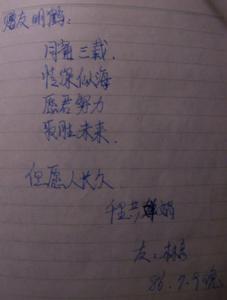 赠友明鹤：
同窗三载，
情深似海
愿君努力
夺胜未来。
但愿人长久
千里共婵娟
友：林
86.7.9晚